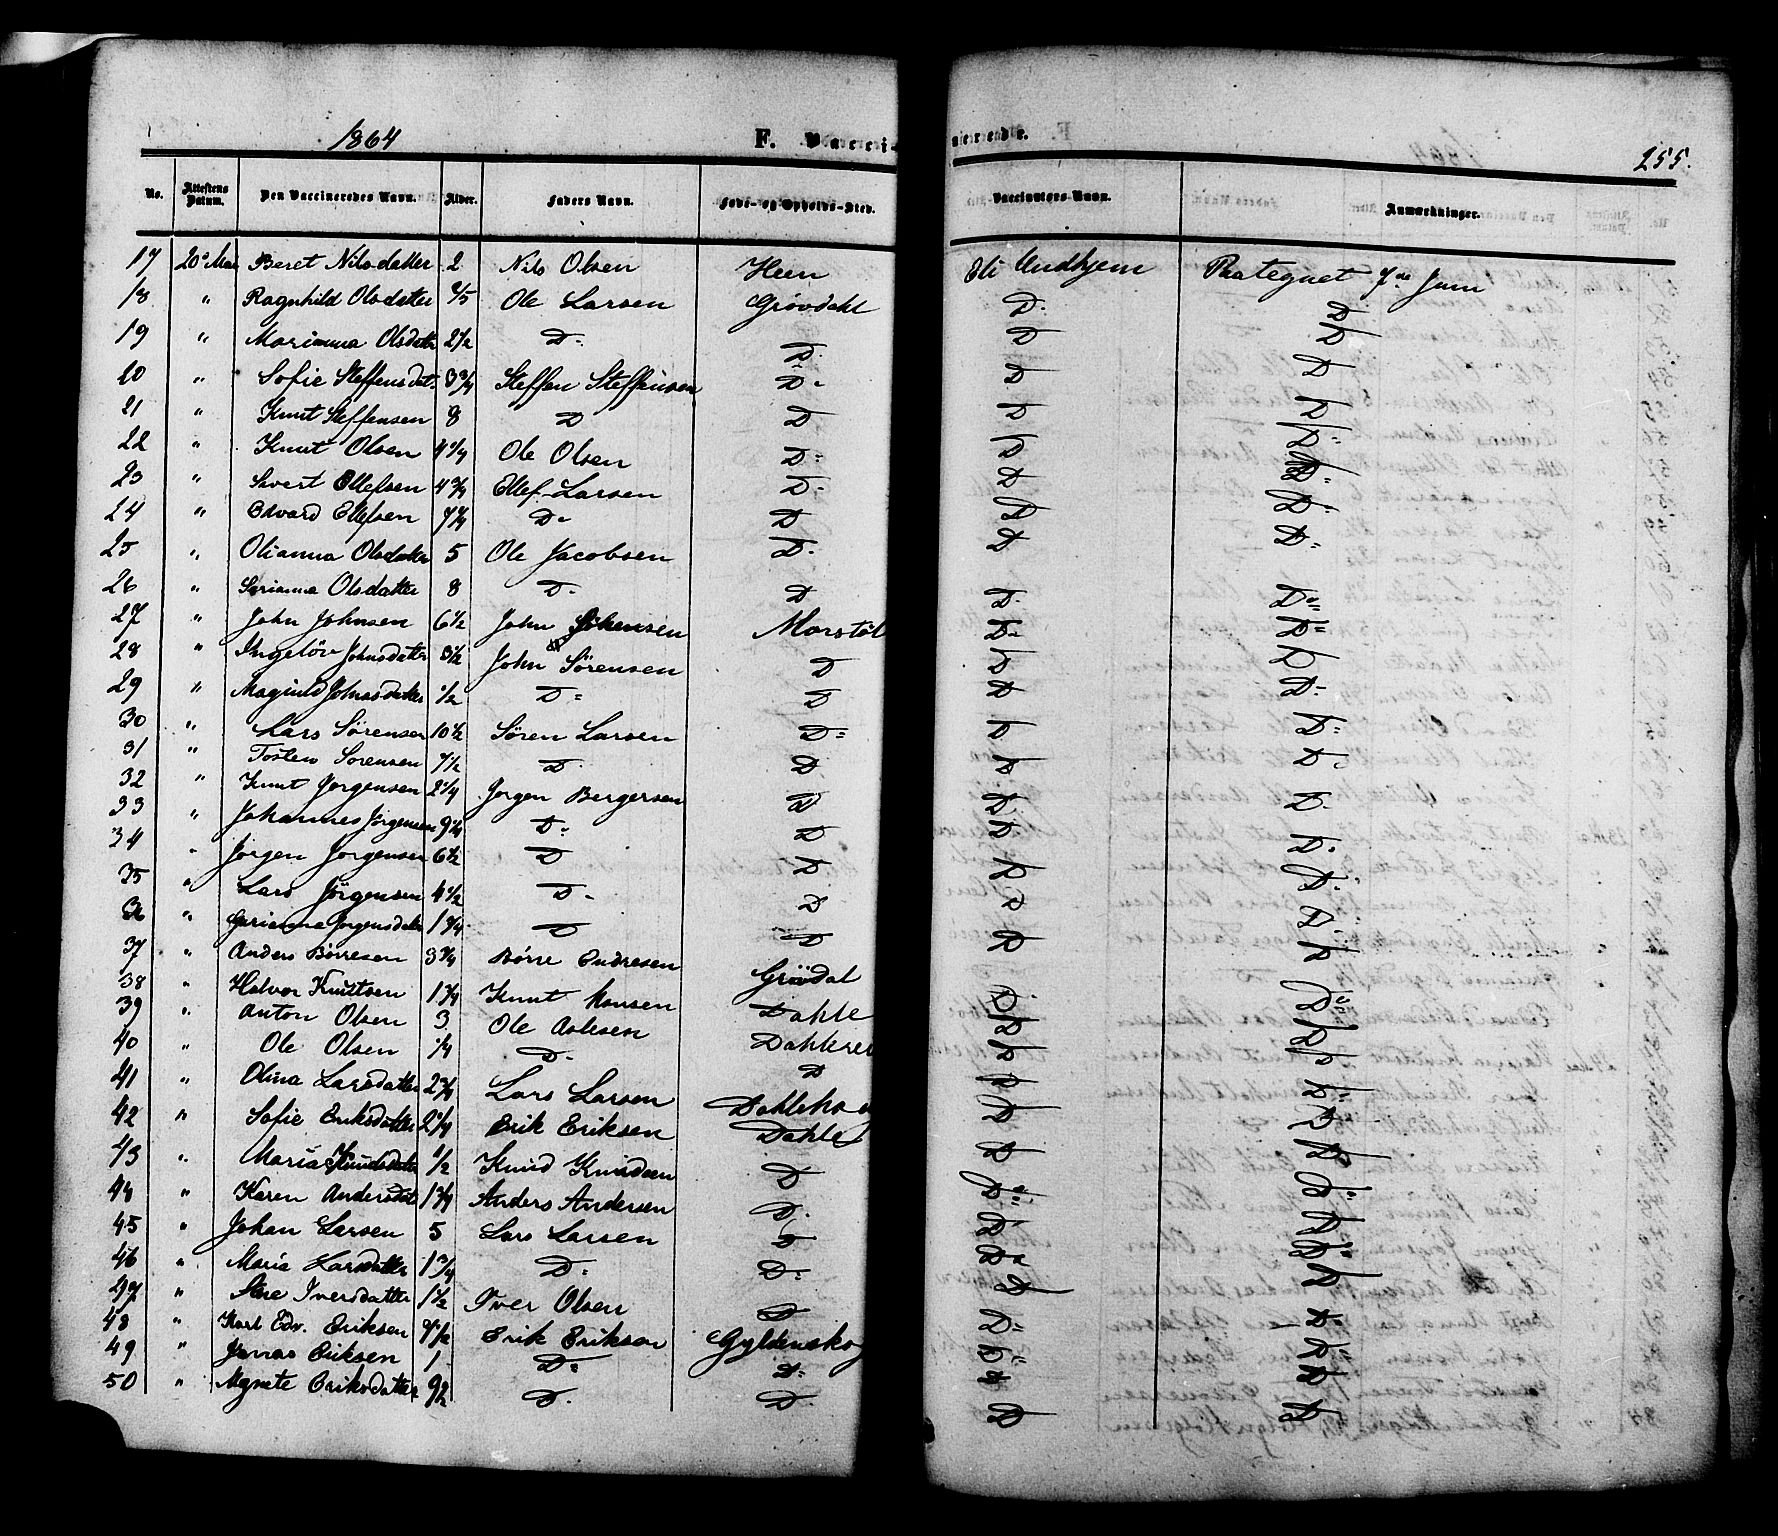 1864 F. Vacci- nerede. 255.
No. Attestens Datum. Den Vaccineredes Navn. Alder. Faders Navn. Føde- og Opholds-Sted. Vaccinators Navn. Anmærkninger.
17 20de Mai Beret Nilsdatter 2 Nils Olsen Heen Eli Undhjem Paategnet 7de Juni
18 " Ragnhild Olsdatter Ole Larsen Grövdahl D. D
19 " Marianna Olsdatter 2 1/2 D. D. D D
20 " Sofie Steffensdat. 3 3/4 Steffen Steffensen D. D D
21 " Knut Steffensen 8 D D D D
22 " Knut Olsen 4 1/4 Ole Olsen D. D D.
23 " Sivert Ellefsen 4 3/4 Ellef Larsen D. D D.
24 " Edvard Ellefsen 7 1/4 D. D D D.
25 " Olianna Olsdatter 5 Ole Jacobsen D. D D.
26 " Serianna Olsdatter 8 D. D D. D.
27 " John Johnsen 6 1/2 John Morstöl D. D.
28 " Ingeborg Johnsdatter 3 1/2 John Sørensen D D D
29 " Magnild Johnsdatter 1/2 D. D D D.
30 " Lars Sørensen 10 1/2 Søren Larsen D. D D.
31 " Tosten Sørensen 7 1/2 D. D D D.
32 " Knut Jørgensen 2 1/4 Jørgen Bergersen D D D.
33 " Johannes Jørgensen 9 1/4 D. D D D.
34 " Jørgen Jørgensen 6 1/2 D D D D.
35 " Lars Jørgensen 4 1/2 D. D D D.
36 " Jørgensdatter 1 3/4 D D D D
37 " Anders Børresen 3 3/4 Børre Endresen Grövdal D D.
38 " Halvor Knutsen 1 3/4 Knut Hansen Dahle D D
39 " Anton Olsen 3 Ole Aslesen Dahle D D
40 " Ole Olsen 1/4 D. D D D
41 " Olina Larsdatter 2 3/4 Lars Larsen Dahlehaug D D
42 " Sofie Eriksdatter 2 1/4 Erik Eriksen Dahle D D
43 " Maria Knudsdatter 1/2 Knud Knudsen D D D
44 " Karen Andersdat 1 3/4 Anders Andersen D. D. D.
45 " Johan Larsen 5 Lars Larsen D D D
46 " Maria Larsdatter 1 3/4 D. D. D. D.
47 " Iversdatter 1 1/2 Iver Olsen D D D
48 " Karl Edv. Eriksen Erik Eriksen Gyldenskog D. D.
49 " Jonas Eriksen 1 D. D. D. D
50 " Agnete Eriksdatter D. D. D D